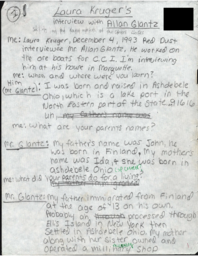 Laura Kruger's
interview with Allan Glantz
me: Laura Kruger, December 4, 1983 Red Dust
interviewee Mr Allan Glantz, He worked on
the ore boats for C.C.I. I'm interviewing
him at his house in Marquette.
me: when and where were you born?
Him: I was born and raised in Ashdebele
(Mr. Glantz) Ohio which is a lake port in the
North Eastern part of the State. 9/16/16
me: What are your parents names?
Mr. Glantz: my father's name was John. He
was born in Finland, My mothers
name was Ida & she was born in
Ashdebele Ohio
me: what did your parents do for a living?
Mr. Glantz: my father immigrated from Finland
at the age of 13 on his own.
Probably processed through
Ellis Island in New York then
settled in Ashdebele Ohio. My mother
along with her sister owned and
operated a Shop